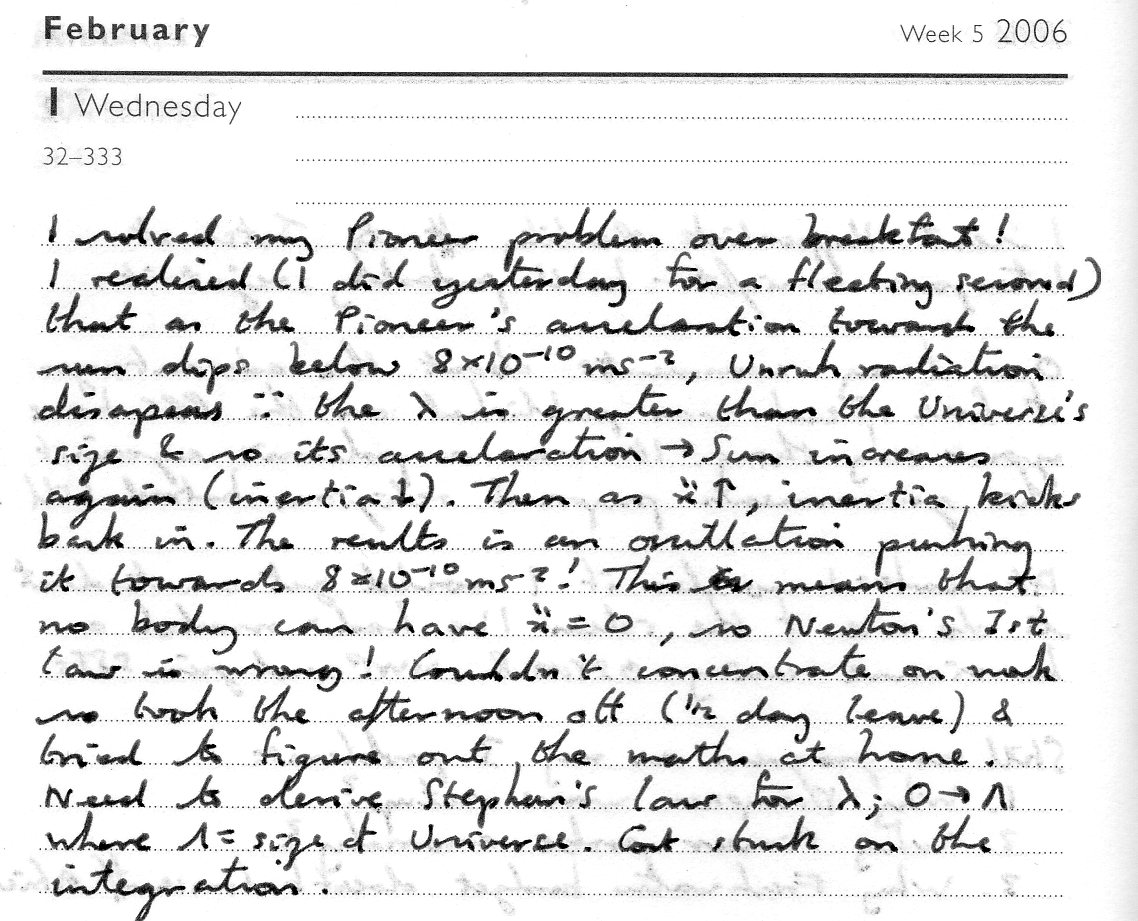 February
Week 5 2006
1 Wednesday
32–333
I solved my Pioneer problem over breakfast!
I realised (I did yesterday for a fleeting second)
that as the Pioneer's accelaration towards the
sun dips below 8×10⁻¹⁰ ms⁻², Unruh radiation
disapears ∵ the λ is greater than the Universe's
size & so its accelaration → Sun increases
again (inertia↓). Then as ẍ↑, inertia kicks
back in. The results is an oscillation pushing
it towards 8×10⁻¹⁰ ms⁻²! This means that
no body can have ẍ = 0, so Newton's 1st
law is wrong! Couldn't concentrate on work
so took the afternoon off (½ day leave) &
tried to figure out the maths at home.
Need to derive Stephan's law for λ; 0→Λ
where Λ = size of Universe. Got stuck on the
integration.